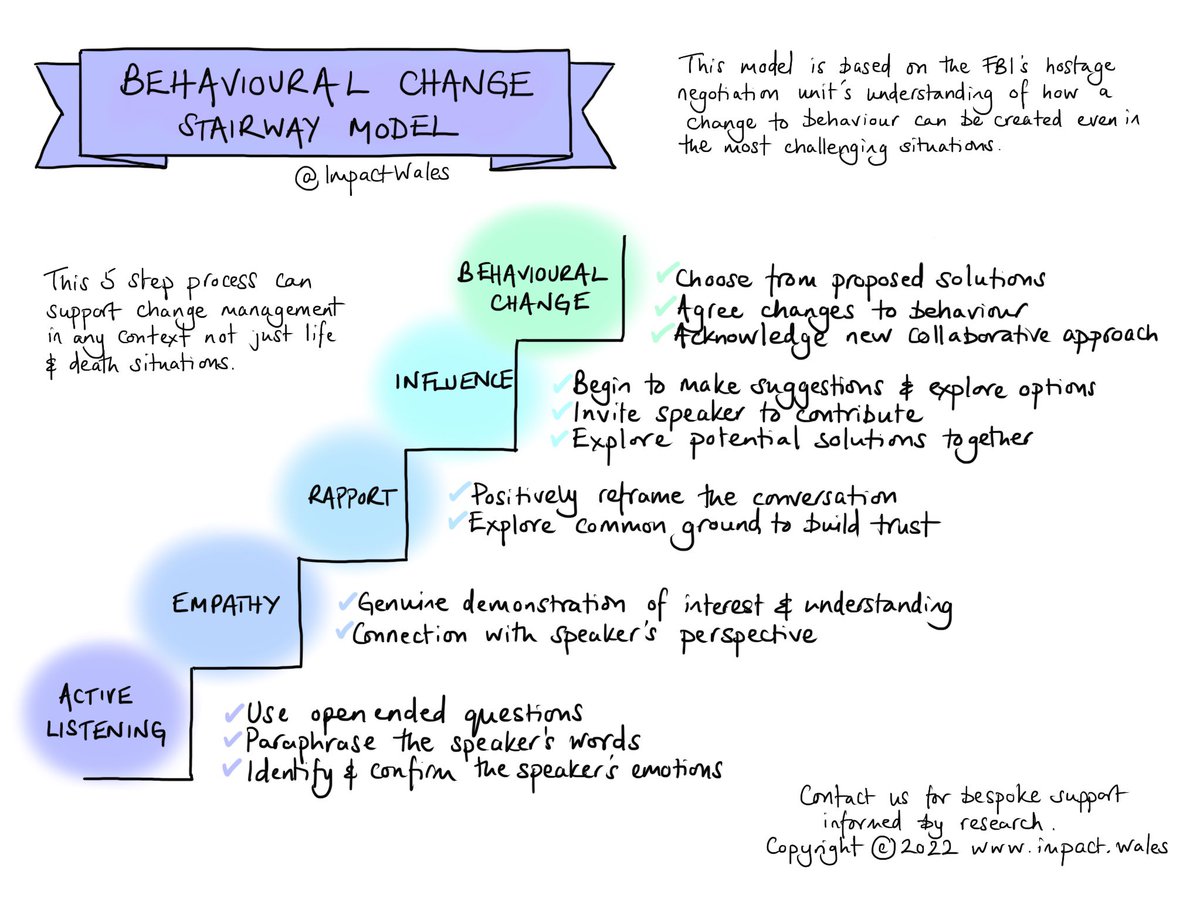 BEHAVIOURAL CHANGE
STAIRWAY MODEL
@ImpactWales
This model is based on the FBI's hostage
negotiation unit's understanding of how a
change to behaviour can be created even in
the most challenging situations.
This 5 step process can
support change management
in any context not just life
& death situations.
BEHAVIOURAL
CHANGE
✓Choose from proposed solutions
✓Agree changes to behaviour
✓Acknowledge new collaborative approach
INFLUENCE
✓Begin to make suggestions & explore options
✓Invite speaker to contribute
✓Explore potential solutions together
RAPPORT
✓Positively reframe the conversation
✓Explore common ground to build trust
EMPATHY
✓Genuine demonstration of interest & understanding
✓Connection with speaker's perspective
ACTIVE
LISTENING
✓Use open ended questions
✓Paraphrase the speaker's words
✓Identify & confirm the speaker's emotions
Contact us for bespoke support
informed by research.
Copyright ©2022 www.impact.wales